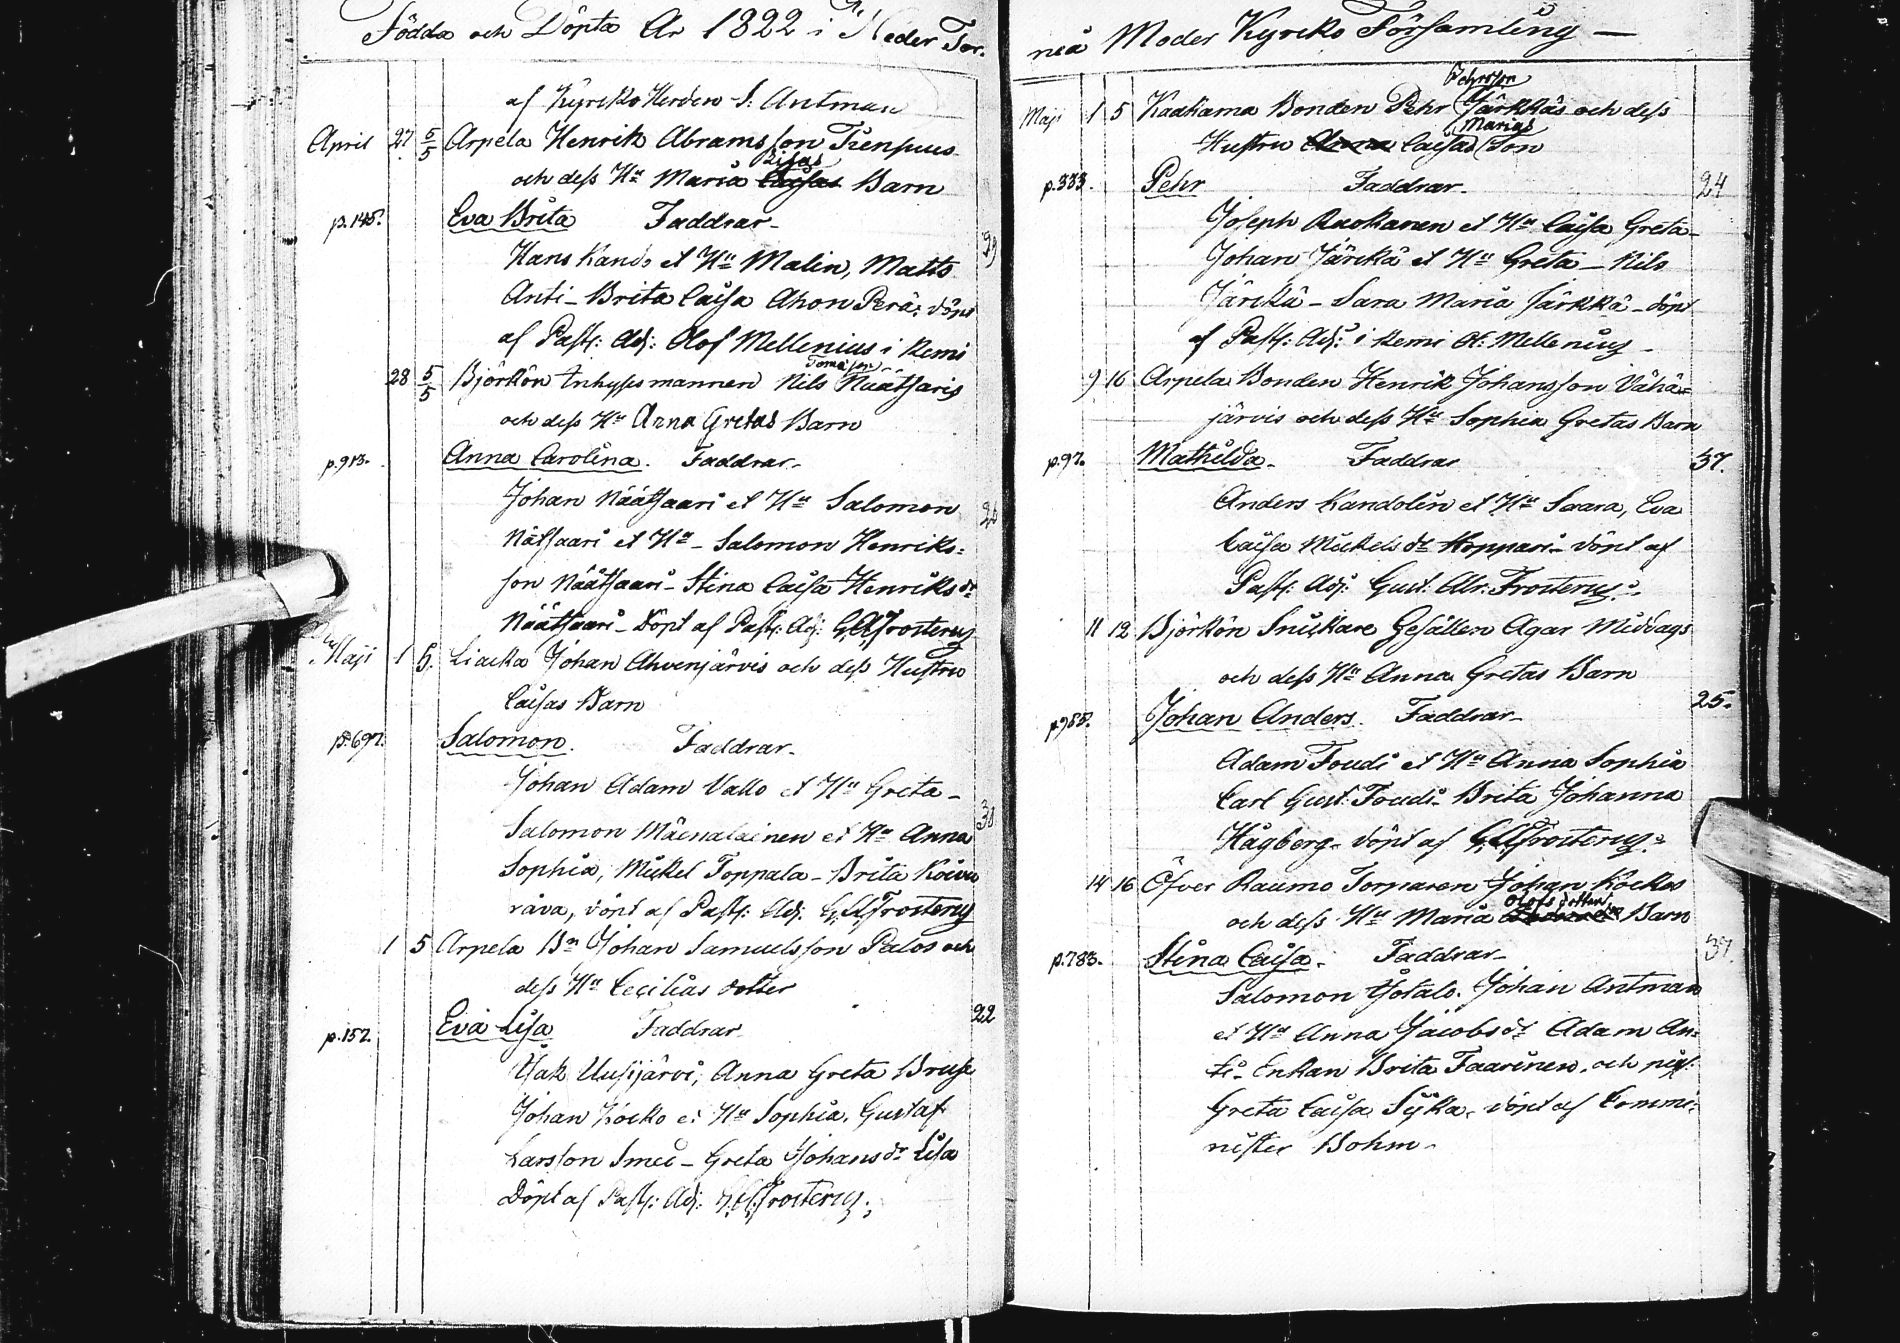 Födda och Döpta År 1822 i Neder Tor-
af Kyrko Herden J: Antman
April 27 5/5 Arpela Henrik Abramsson
Bisas
och dess Hu Maria Caisas Barn
p.145. Eva Brita Faddrar-
29
Hans Kando et Hu Malin, Matts
Anti - Brita Caisa Ahon Perä: döpt
af Past: Adj: Olof Mellenius i Kemi
Tomasson
28 5/5 Björkön Inhyses mannen Nils Näätsaris
och dess Hu Anna Gretas Barn
p.913. Anna Carolina. Faddrar-
Johan Näätsaari et Hu Salomon
Nätsaari et Hu - Salomon Henriks=
son Näätsaari - Stina Caisa Henriks dr
Näätsaari - Döpt af Past: Adj: G.A. Frosterus
Maji 1 5. Liacka Johan Ahvenjärvis och dess Hustru
Caisas Barn
p.697. Salomon. Faddrar-
Johan Adam Vallo et Hu Greta -
30
Salomon Mäenalainen et Hu Anna
Sophia, Mickel Toppala - Brita Koivu
räva, döpt af Past: Adj. G.A. Frosterus
1 5 Arpela Bn Johan Samuelsson Palos och
dess Hu Cecilias dotter
22
p.152. Eva Lisa Faddrar
Isak Uusijärvi, Anna Greta Bruse
Johan Kocko et Hu Sophia. Gustaf
Larsson Smed - Greta Johans dr Lisa
Döpt af Past: Adj: G.A. Frosterus.
neå Moder Kyrko Församling -
Pehrsson
Maji 1 5 Kaakama Bonden Pehr Järkkäs och dess
Marias
Hustru Anna Caisas Son
p.333. Pehr Faddrar- 24
Joseph Ruokanen et Hu Caisa Greta-
Johan Järckä et Hu Greta - Nils
Järckä - Sara Maria Järkkä - döpt
af Past: Adj: i Kemi Ol: Mellenius -
9 16 Arpela Bonden Henrik Johansson Vähä=
järvis och dess Hu Sophia Gretas Barn
p.97. Mathilda. Faddrar 37.
Anders Kandolin et Hu Saara, Eva
Caisa Mickels dr Hoppari - döpt af
Past: Adj: Gust. Abr: Frosterus.
11 12 Björkön Snickare Gesällen Agar Middags
och dess Hu Anna Gretas Barn
25.
p.955. Johan Anders. Faddrar-
Adam Foudi et Hu Anna Sophia
Carl Gust: Foudi - Brita Johanna
Hågberg - döpt af G.A. Frosterus.
14 16 Öfver Raumo Torparen Johan Kockos
Olofs dotters
och dess Hu Maria Barn
p.783. Stina Caisa. Faddrar- 37.
Salomon Yötalo. Johan Antman
et Hu Anna Jacobs dr Adam An=
ti - Enkan Brita Faarinen. och pig:
Greta Caisa Syka. döpt af Commi=
nister Bohm -